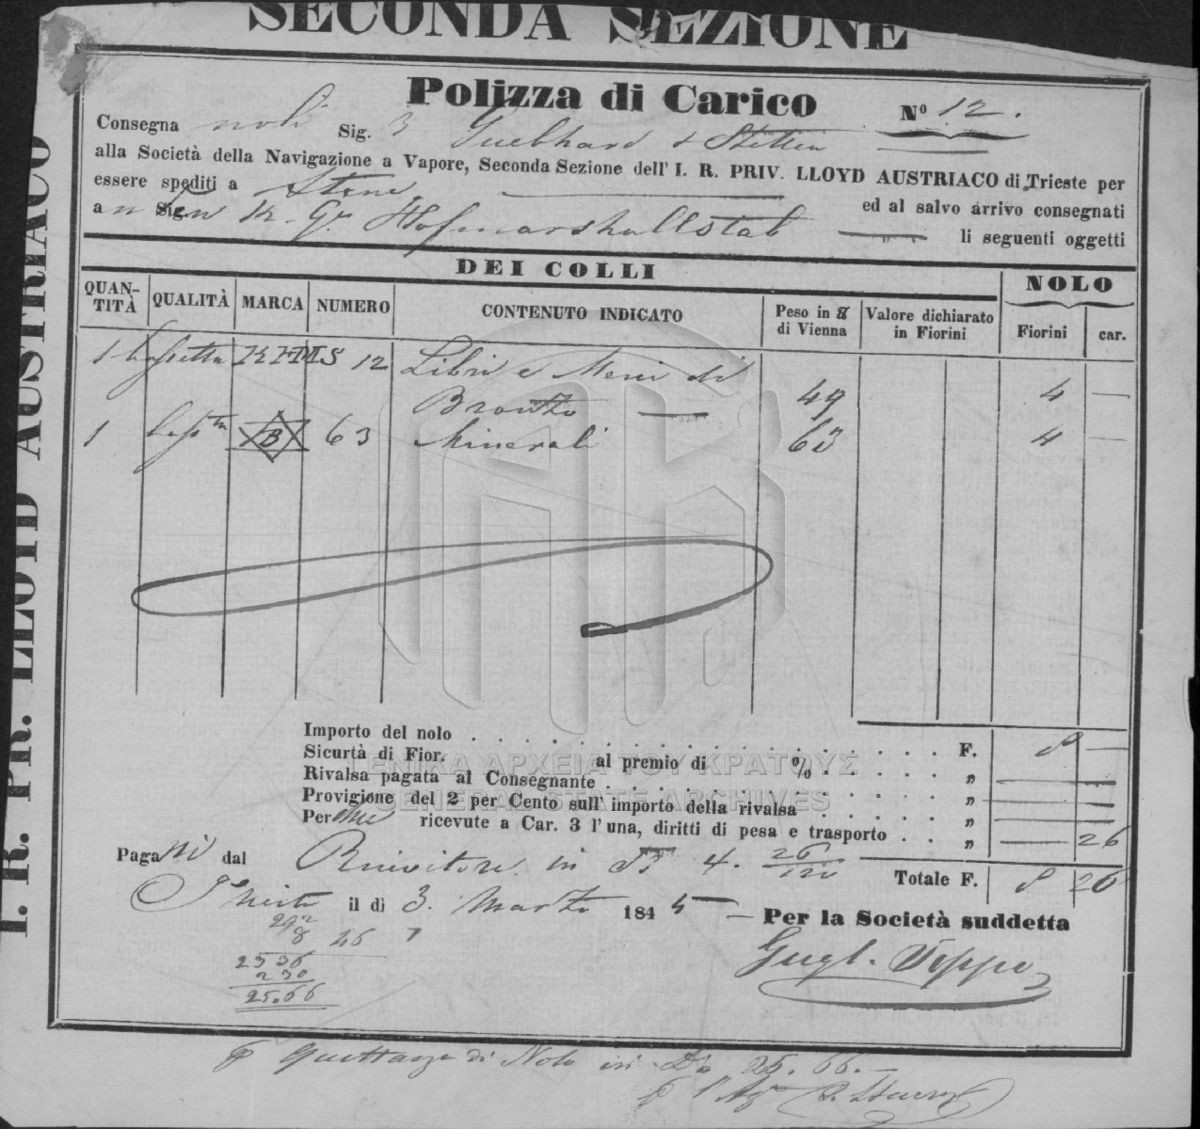 SECONDA SEZIONE
I. R. PR. LLOYD AUSTRIACO
Polizza di Carico
Nº 12.
Consegna noli Sig. & Stellin
alla Società della Navigazione a Vapore, Seconda Sezione dell' I. R. PRIV. LLOYD AUSTRIACO di Trieste per
essere spediti a Atene ed al salvo arrivo consegnati
a Sig. K. Gr. Hofmarschallstab li seguenti oggetti
DEI COLLI NOLO
QUANTITÀ QUALITÀ MARCA NUMERO CONTENUTO INDICATO Peso in ℔ di Vienna Valore dichiarato in Fiorini Fiorini car.
1 Cassetta KHMS 12 Libri e Merci di
Bronzo 49 4 —
1 B 63 Minerali 63 4 —
Importo del nolo F. 8 —
Sicurtà di Fior. al premio di % „
Rivalsa pagata al Consegnante „
Provigione del 2 per Cento sull' importo della rivalsa „
Per due ricevute a Car. 3 l'una, diritti di pesa e trasporto „ 26
Paga dal Ricevitore in 4. 26
Totale F. 8 26
Trieste il dì 3. Marzo 1845 —
Per la Società suddetta
8 46
2336
230
25.66
Quittanza di Nolo in D. 25. 66. —
ΓΕΝΙΚΑ ΑΡΧΕΙΑ ΤΟΥ ΚΡΑΤΟΥΣ
GENERAL STATE ARCHIVES